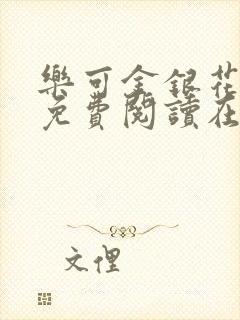 樂可金銀花
免費閱讀在
文俚